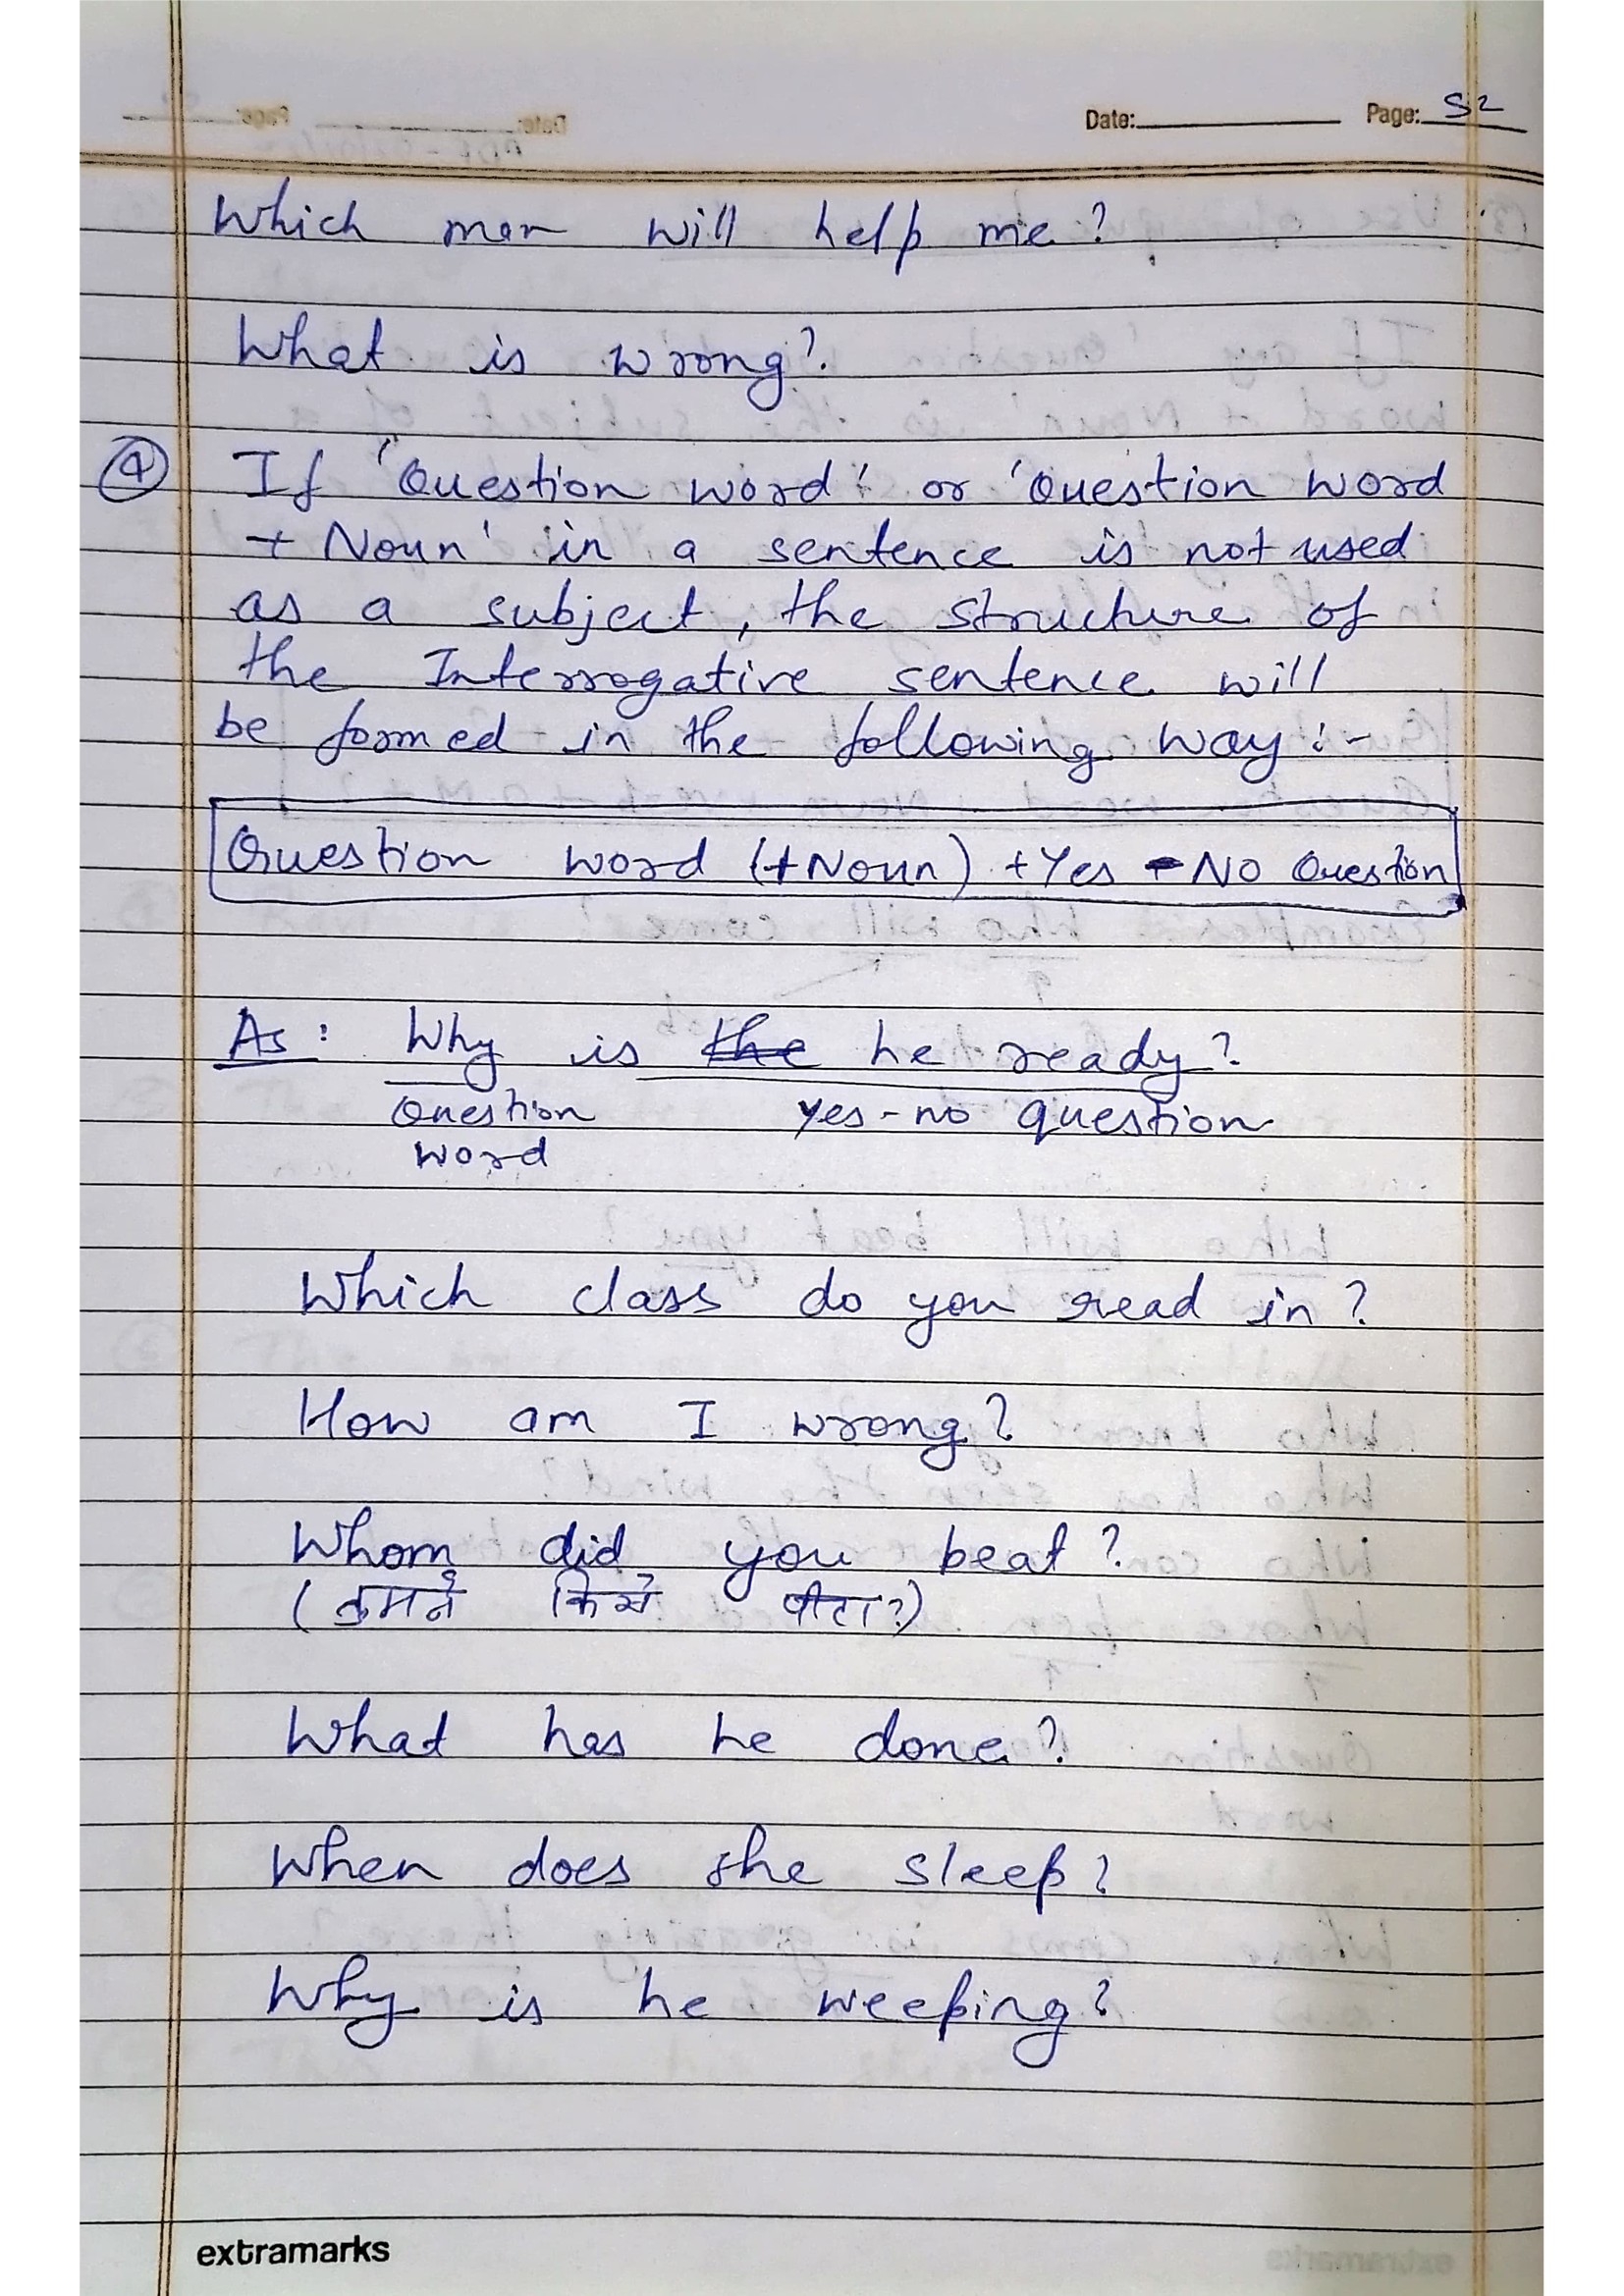 Date: Page: 52
Which man will help me?
What is wrong?
④ If 'Question word' or 'Question word
+ Noun' in a sentence is not used
as a subject, the structure of
the Interrogative sentence will
be formed in the following way:-
Question word (+Noun) + Yes - No Question
As: Why is the he ready?
Question yes-no question
word
Which class do you read in?
How am I wrong?
Whom did you beat?
(तुमने किसे पीटा?)
What has he done?
When does she sleep?
Why is he weeping?
extramarks